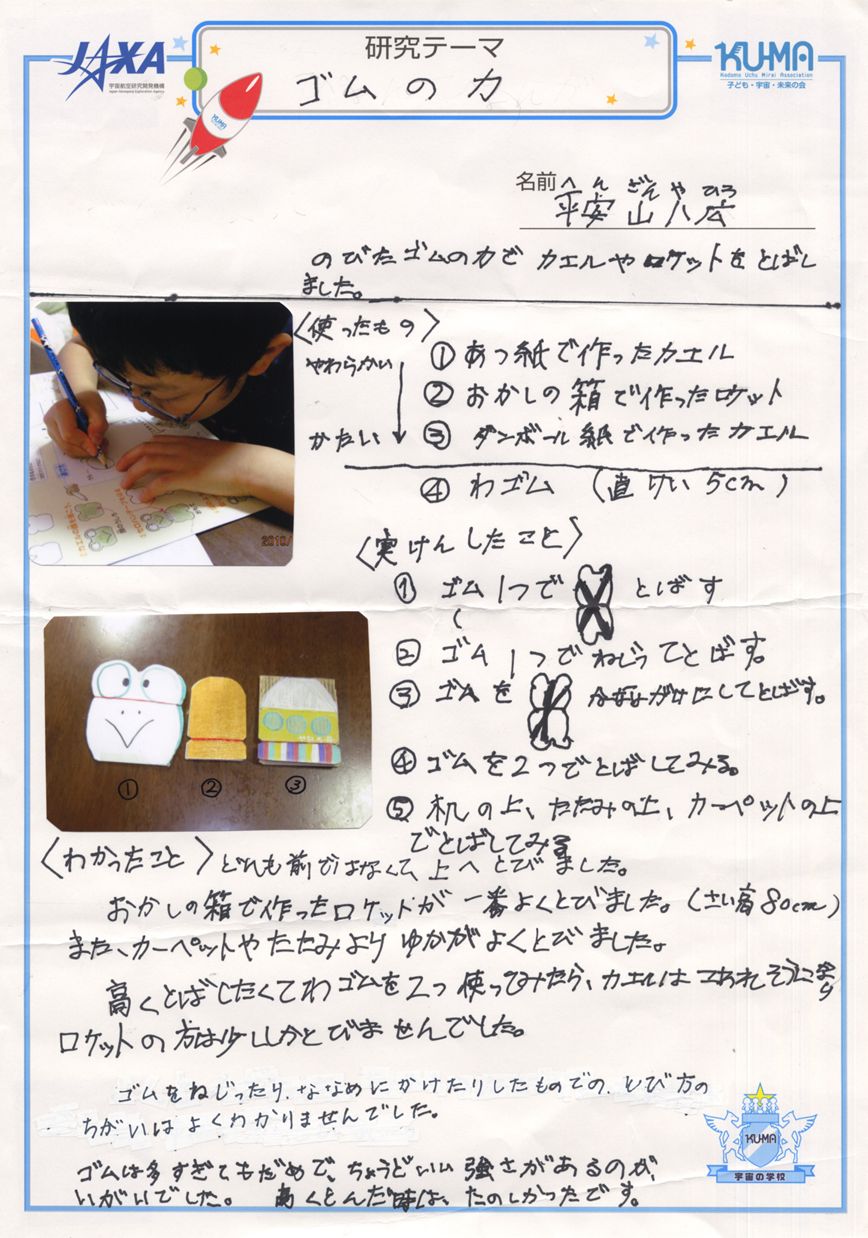 JAXA
宇宙航空研究開発機構
Japan Aerospace Exploration Agency
研究テーマ
ゴムの力
KU-MA
Kodomo Uchu Mirai Association
子ども・宇宙・未来の会
KU-MA
名前 へんざんやひろ
平安山八広
のびたゴムの力で カエルやロケットをとばし
ました。
〈使ったもの〉
やわらかい
① あつ紙で作ったカエル
② おかしの箱で作ったロケット
かたい
③ ダンボール紙で作ったカエル
④ わゴム (直けい5cm)
2010
〈実けんしたこと〉
① ゴム1つで とばす
② ゴム1つでねじってとばす。
③ ゴムを ななめがけにしてとばす。
④ ゴムを2つでとばしてみる。
⑤ 机の上、たたみの上、カーペットの上
でとばしてみる
① ② ③
〈わかったこと〉 どれも前ではなくて、上へとびました。
おかしの箱で作ったロケットが 一番よくとびました。(さい高80cm)
また、カーペットやたたみより ゆかがよくとびました。
高くとばしたくてわゴムを2つ使ってみたら、カエルはこわれそうになり
ロケットの方は少ししかとびませんでした。
ゴムをねじったり、ななめにかけたりしたものでの、とび方の
ちがいはよくわかりませんでした。
ゴムは多すぎてもだめで、ちょうどいい強さがあるのが、
いがいでした。 高くとんだ時は、たのしかったです。
KU-MA
宇宙の学校